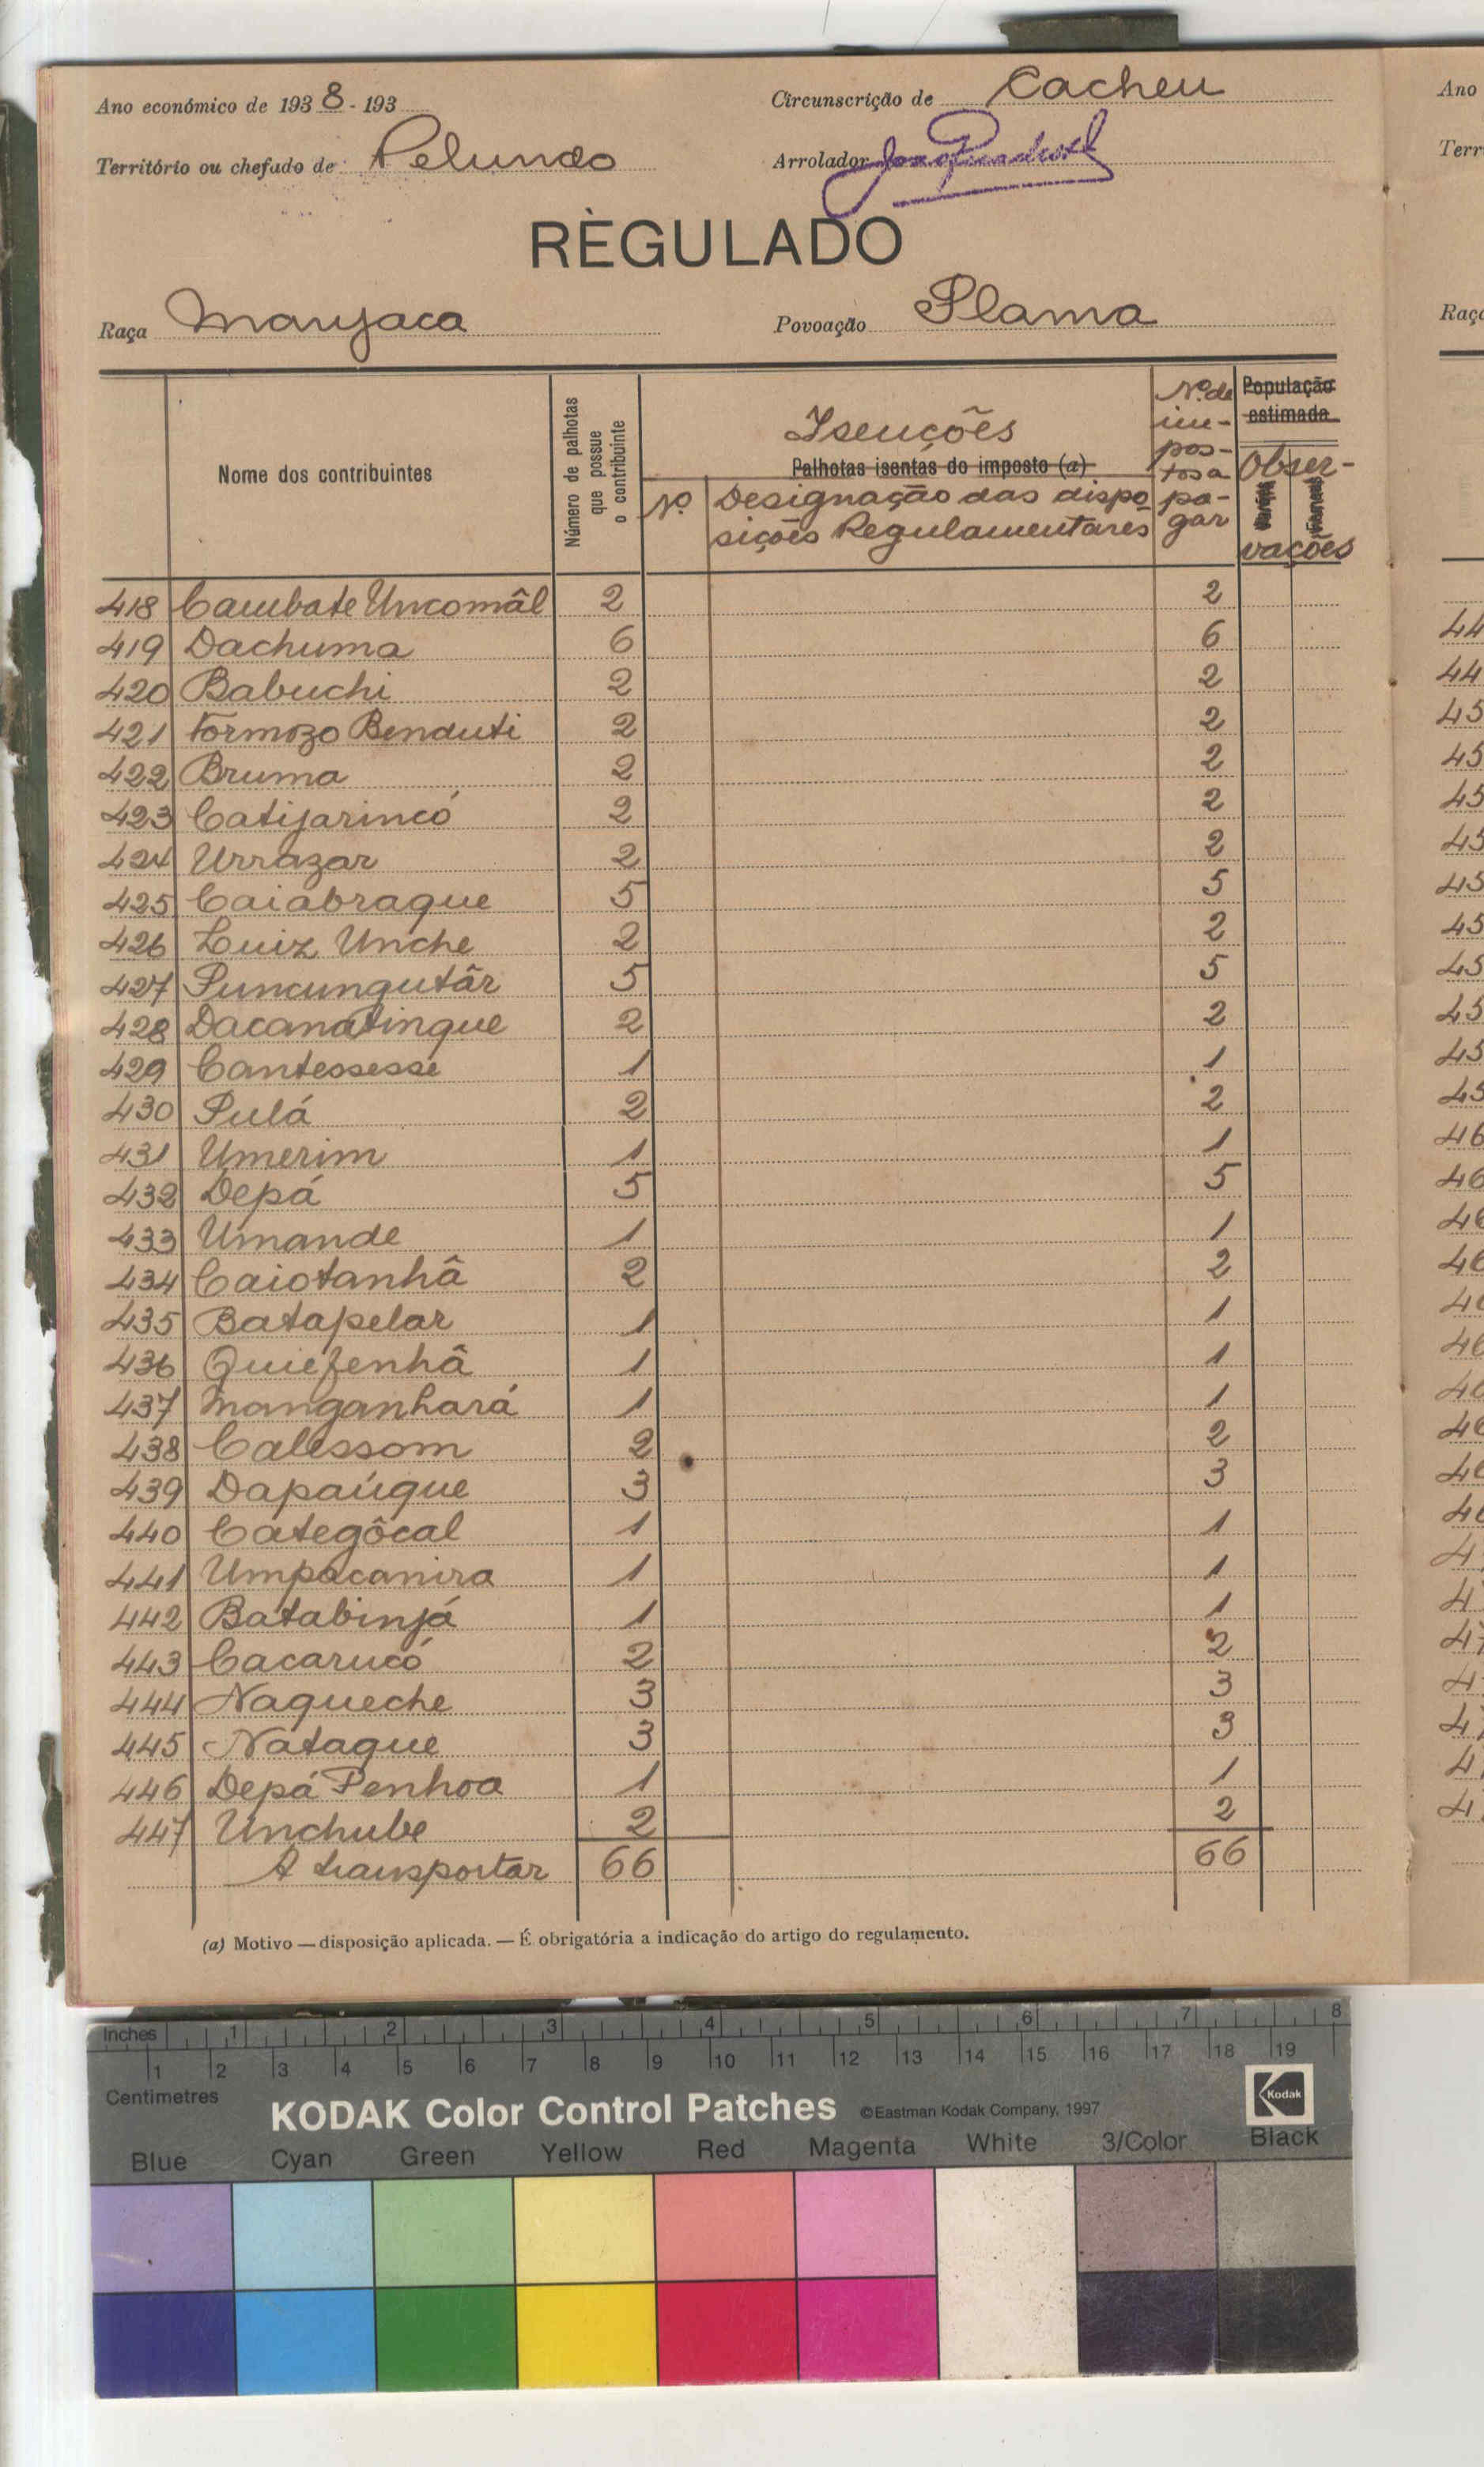 Ano económico de 193 8 - 193
Circunscrição de Cacheu
Território ou chefado de Pelundo
Arrolador
RÈGULADO
Raça Manjaca
Povoação Plama
Nome dos contribuintes
Número de palhotas que possue o contribuinte
Isenções
Palhotas isentas do imposto (a)
Nº
Designação das dispo-
sições Regulamentares
Nº de
im-
pos-
tos a
pa-
gar
População
estimada
Obser-
vações
418 Cambate Uncomâl 2 2
419 Dachuma 6 6
420 Babuchi 2 2
421 Formozo Benduti 2 2
422 Bruma 2 2
423 Catijarincó 2 2
424 Urrazar 2 2
425 Caiabraque 5 5
426 Luiz Unche 2 2
427 Puncungutâr 5 5
428 Dacanatinque 2 2
429 Canteosesse 1 1
430 Pulá 2 2
431 Umerim 1 1
432 Depá 5 5
433 Umande 1 1
434 Caiotanhâ 2 2
435 Batapelar 1 1
436 Quiefenhâ 1 1
437 Manganhará 1 1
438 Calessom 2 2
439 Dapaúque 3 3
440 Categôcal 1 1
441 Umpacanira 1 1
442 Batabinjá 1 1
443 Cacarucó 2 2
444 Naqueche 3 3
445 Nataque 3 3
446 Depá Penhoa 1 1
447 Unchube 2 2
A transportar 66 66
(a) Motivo — disposição aplicada. — É obrigatória a indicação do artigo do regulamento.
Ano
Terr
Raça
Inches 1 2 3 4 5 6 7 8
1 2 3 4 5 6 7 8 9 10 11 12 13 14 15 16 17 18 19
Centimetres
KODAK Color Control Patches ©Eastman Kodak Company, 1997 Kodak
Blue Cyan Green Yellow Red Magenta White 3/Color Black